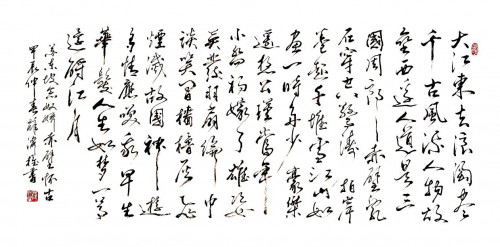 大江東去浪淘盡
千古風流人物故
壘西邊人道是三
國周郎赤壁亂
石穿空驚濤拍岸
卷起千堆雪江山如
畫一時多少豪傑
遙想公瑾當年
小喬初嫁了雄姿
英發羽扇綸巾
談笑間檣櫓灰飛
煙滅故國神遊
多情應笑我早生
華髮人生如夢一尊
還酹江月
蘇東坡念奴嬌赤壁怀古
甲辰仲春書